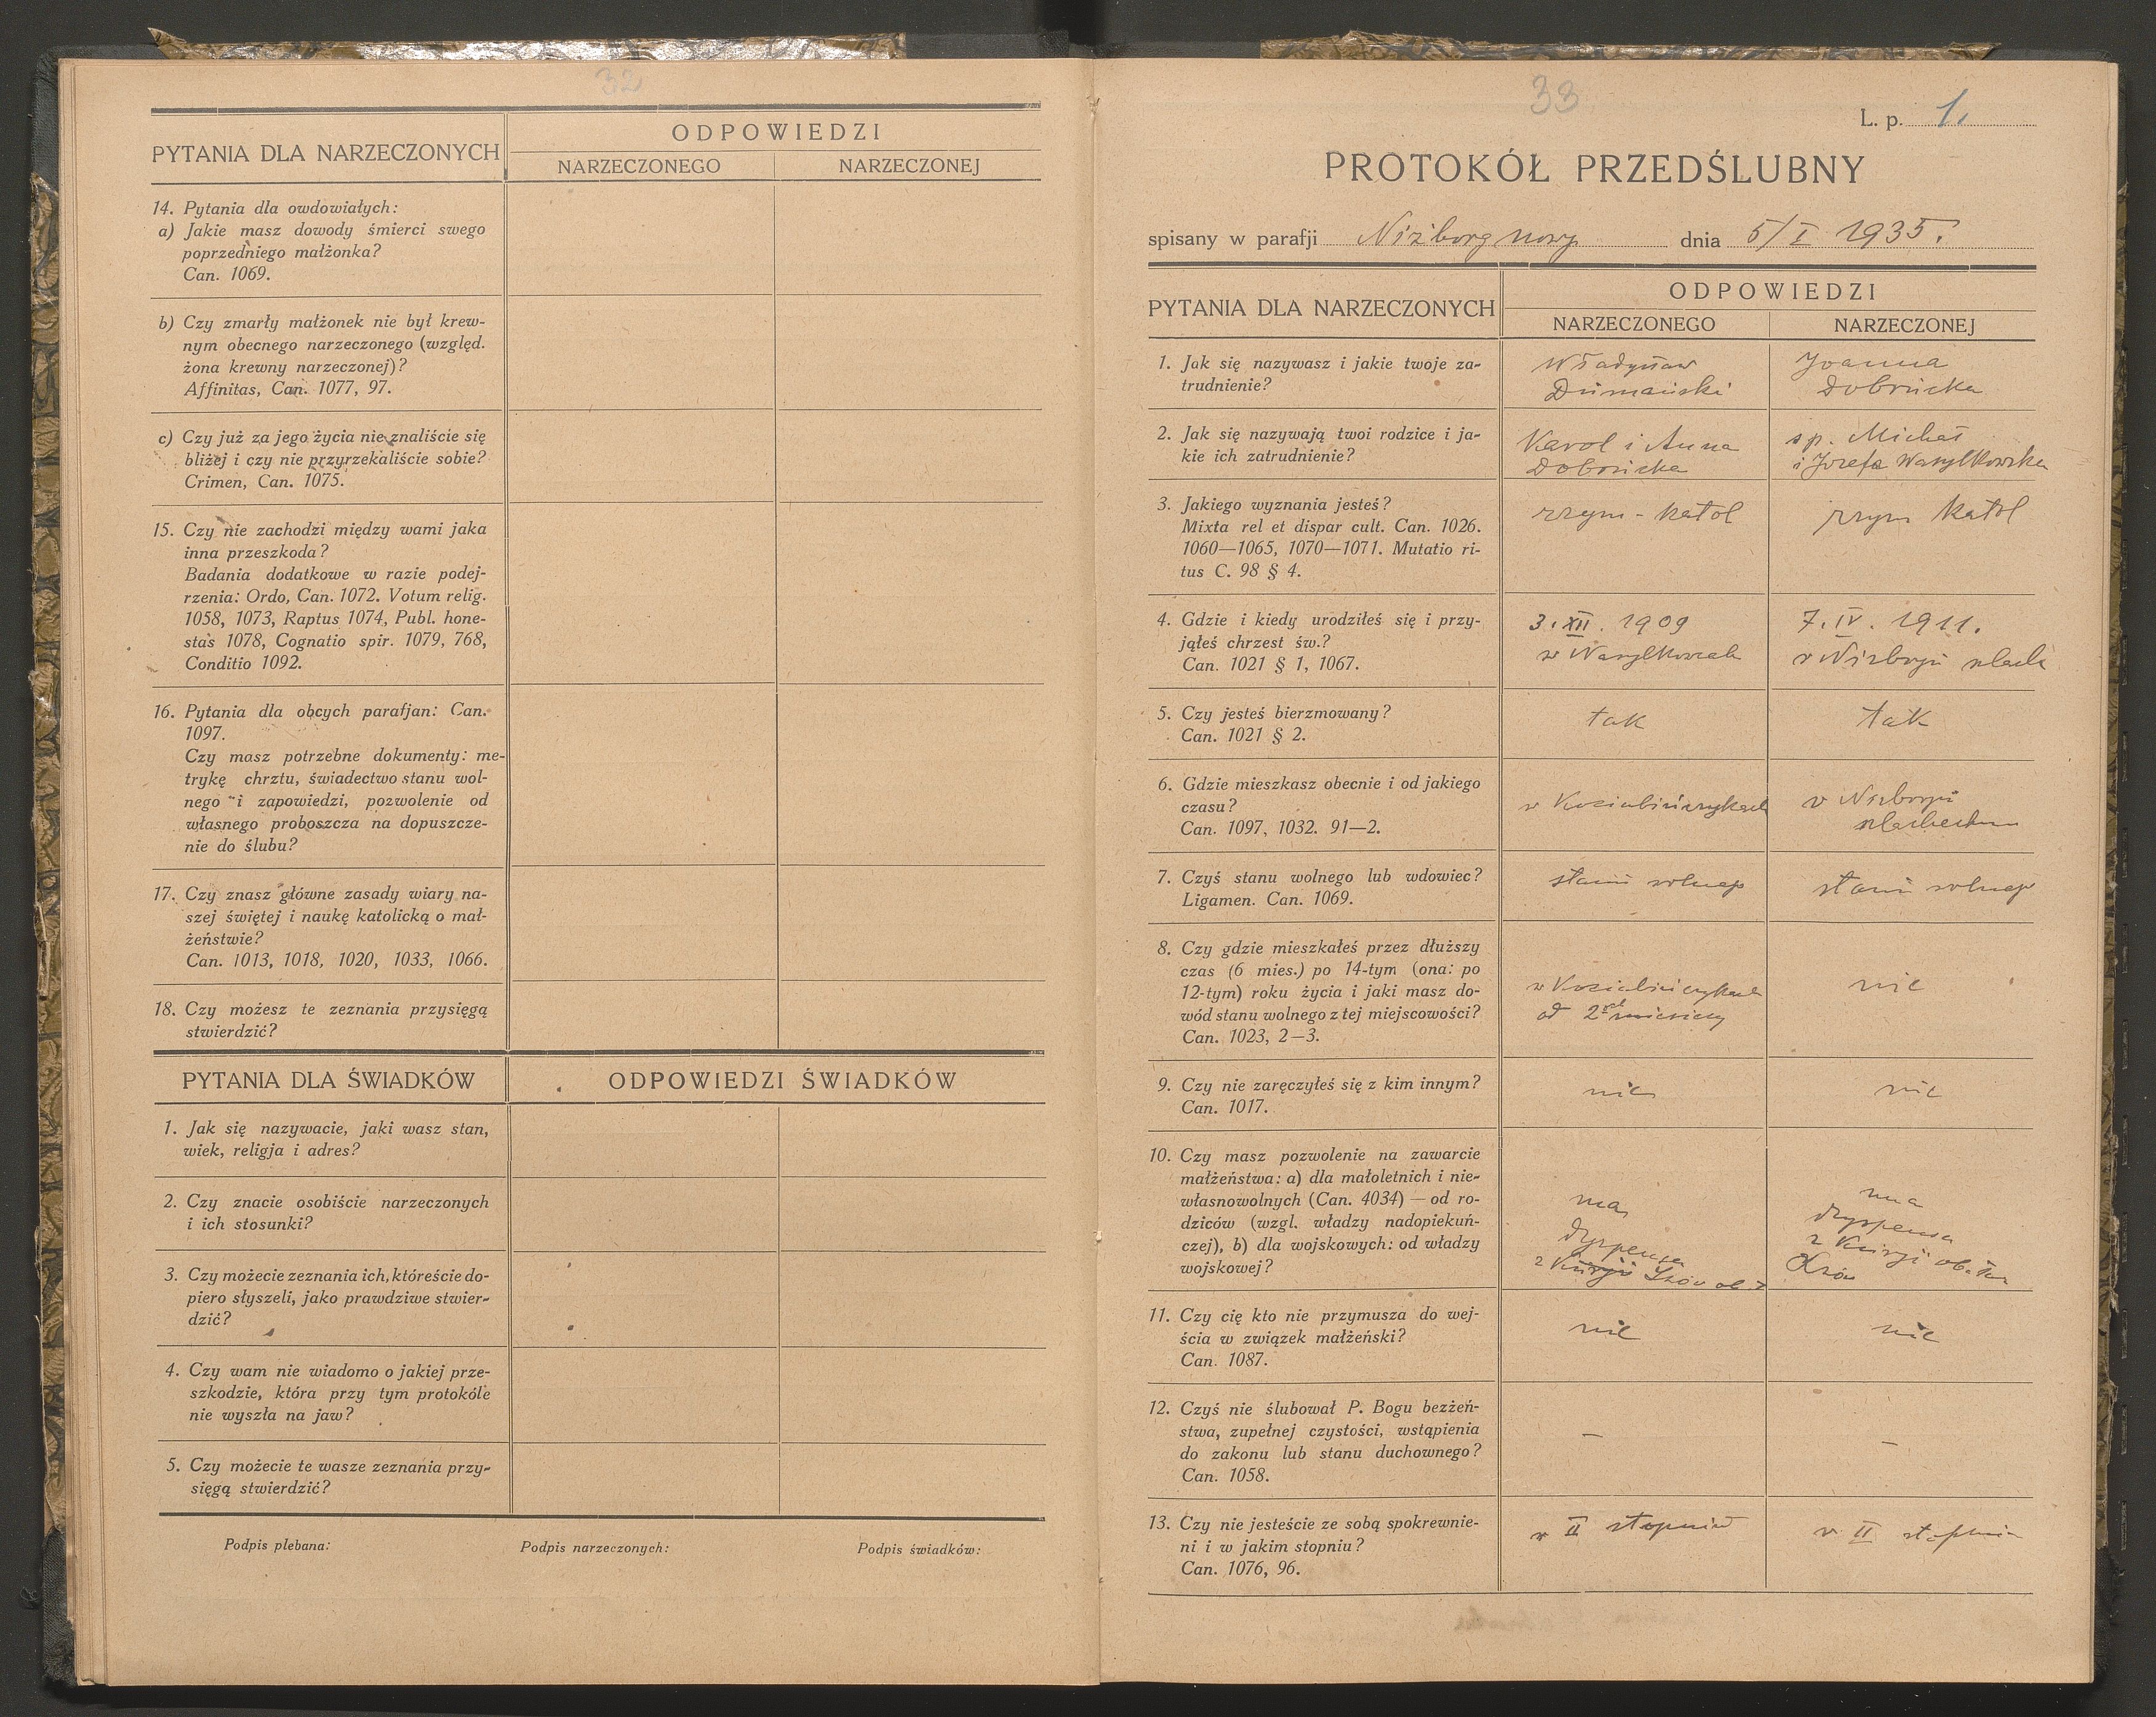 32
PYTANIA DLA NARZECZONYCH
ODPOWIEDZI
NARZECZONEGO
NARZECZONEJ
14. Pytania dla owdowiałych:
a) Jakie masz dowody śmierci swego
poprzedniego małżonka?
Can. 1069.
b) Czy zmarły małżonek nie był krew-
nym obecnego narzeczonego (względ.
żona krewny narzeczonej)?
Affinitas, Can. 1077, 97.
c) Czy już za jego życia nie znaliście się
bliżej i czy nie przyrzekaliście sobie?
Crimen, Can. 1075.
15. Czy nie zachodzi między wami jaka
inna przeszkoda?
Badania dodatkowe w razie podej-
rzenia: Ordo, Can. 1072. Votum relig.
1058, 1073, Raptus 1074, Publ. hone-
stas 1078, Cognatio spir. 1079, 768,
Conditio 1092.
16. Pytania dla obcych parafjan: Can.
1097.
Czy masz potrzebne dokumenty: me-
trykę chrztu, świadectwo stanu wol-
nego i zapowiedzi, pozwolenie od
własnego proboszcza na dopuszcze-
nie do ślubu?
17. Czy znasz główne zasady wiary na-
szej świętej i naukę katolicką o mał-
żeństwie?
Can. 1013, 1018, 1020, 1033, 1066.
18. Czy możesz te zeznania przysięgą
stwierdzić?
PYTANIA DLA ŚWIADKÓW
ODPOWIEDZI ŚWIADKÓW
1. Jak się nazywacie, jaki wasz stan,
wiek, religja i adres?
2. Czy znacie osobiście narzeczonych
i ich stosunki?
3. Czy możecie zeznania ich, któreście do-
piero słyszeli, jako prawdziwe stwier-
dzić?
4. Czy wam nie wiadomo o jakiej prze-
szkodzie, która przy tym protokóle
nie wyszła na jaw?
5. Czy możecie te wasze zeznania przy-
sięgą stwierdzić?
Podpis plebana:
Podpis narzeczonych:
Podpis świadków:
33
L. p. 1.
PROTOKÓŁ PRZEDŚLUBNY
spisany w parafji Niżborg nowy dnia 5/I 1935.
PYTANIA DLA NARZECZONYCH
ODPOWIEDZI
NARZECZONEGO
NARZECZONEJ
1. Jak się nazywasz i jakie twoje za-
trudnienie?
Władysław
Dumański
Joanna
Dobrucka
2. Jak się nazywają twoi rodzice i ja-
kie ich zatrudnienie?
Karol i Anna
Dobrucka
sp. Michał
i Józefa Wasylkowska
3. Jakiego wyznania jesteś?
Mixta rel et dispar cult. Can. 1026.
1060—1065, 1070—1071. Mutatio ri-
tus C. 98 § 4.
rzym-katol
rzym katol
4. Gdzie i kiedy urodziłeś się i przy-
jąłeś chrzest św.?
Can. 1021 § 1, 1067.
3. XII. 1909
w Wasylkowcach
7. IV. 1911.
w Niżborgu szlach
5. Czy jesteś bierzmowany?
Can. 1021 § 2.
tak
tak
6. Gdzie mieszkasz obecnie i od jakiego
czasu?
Can. 1097, 1032. 91—2.
w Kociubińczykach
w Niżborgu
szlacheckim
7. Czyś stanu wolnego lub wdowiec?
Ligamen. Can. 1069.
stanu wolnego
stanu wolnego
8. Czy gdzie mieszkałeś przez dłuższy
czas (6 mies.) po 14-tym (ona: po
12-tym) roku życia i jaki masz do-
wód stanu wolnego z tej miejscowości?
Can. 1023, 2—3.
w Kociubińczykach
od 2ch miesięcy
nie
9. Czy nie zaręczyłeś się z kim innym?
Can. 1017.
nie
nie
10. Czy masz pozwolenie na zawarcie
małżeństwa: a) dla małoletnich i nie-
własnowolnych (Can. 4034) — od ro-
dziców (wzgl. władzy nadopiekuń-
czej), b) dla wojskowych: od władzy
wojskowej?
ma
dyspensa
z Kurji Lwów ob.
ma
dyspensa
z Kurji ob.
Lwów
11. Czy cię kto nie przymusza do wej-
ścia w związek małżeński?
Can. 1087.
nie
nie
12. Czyś nie ślubował P. Bogu bezżeń-
stwa, zupełnej czystości, wstąpienia
do zakonu lub stanu duchownego?
Can. 1058.
—
—
13. Czy nie jesteście ze sobą spokrewnie-
ni i w jakim stopniu?
Can. 1076, 96.
w II stopniu
w II stopniu